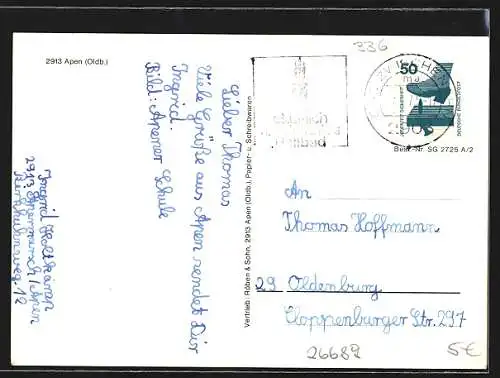 336
2913 Apen (Oldb.)
50
Lieber Thomas
Viele Grüße aus Apen sendet Dir
Ingrid.
Bild: Apener Schule
Ingrid
2913 Apen
Vertrieb: Röben & Sohn, 2913 Apen (Oldb.), Papier- u. Schreibwaren
Bestr.-Nr. SG 2725 A/2
An
Thomas Hoffmann
29 Oldenburg
Cloppenburger Str. 297
26689
5€